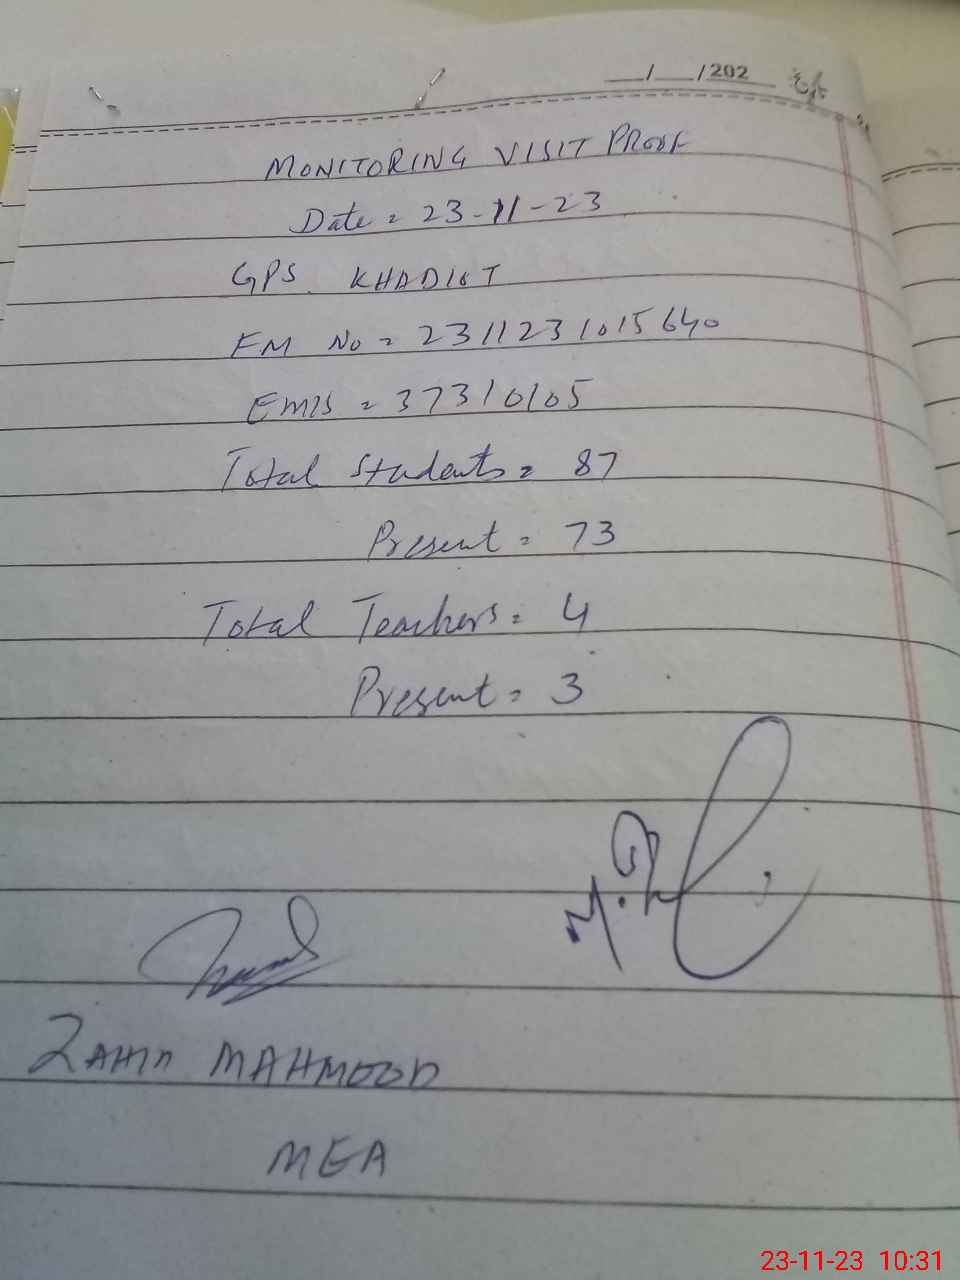 __/__/202
MONITORING VISIT PROOF
Date = 23-11-23
GPS KHADIOT
FM No = 2311231015640
EMIS = 37310105
Total Students = 87
Present = 73
Total Teachers = 4
Present = 3
MAHMOOD
MEA
23-11-23 10:31